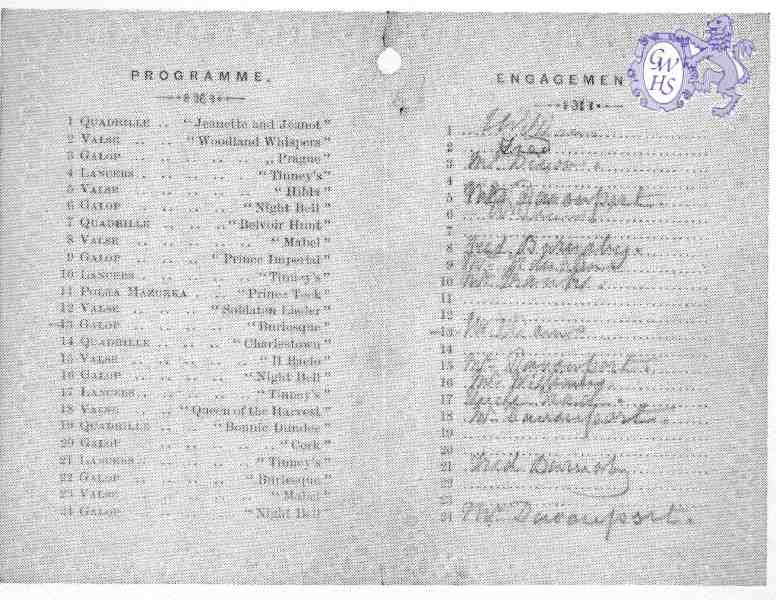 PROGRAMME.
1 QUADRILLE .. "Jeanette and Jeanot"
2 VALSE .. .. "Woodland Whispers"
3 GALOP .. .. .. „Prague"
4 LANCERS .. .. .. "Tinney's"
5 VALSE .. .. .. .. "Hilda"
6 GALOP .. .. .. "Night Bell"
7 QUADRILLE .. .. "Belvoir Hunt"
8 VALSE .. .. .. .. "Mabel"
9 GALOP .. .. "Prince Imperial"
10 LANCERS .. .. .. "Tinney's"
11 POLKA MAZURKA . .. "Prince Teck"
12 VALSE .. .. "Soldaten Lieder"
13 GALOP .. .. .. "Burlesque"
14 QUADRILLE .. .. "Charlestown"
15 VALSE .. .. .. "Il Bacio"
16 GALOP .. .. .. "Night Bell"
17 LANCERS .. .. .. "Tinney's"
18 VALSE .. .. "Queen of the Harvest"
19 QUADRILLE .. .. "Bonnie Dundee"
20 GALOP .. .. .. .. "Cork"
21 LANCERS .. .. .. "Tinney's"
22 GALOP .. .. .. "Burlesque"
23 VALSE .. .. .. .. "Mabel"
24 GALOP .. .. .. "Night Bell"
ENGAGEMEN
GWHS
1
2 Fred
3 Mr
4
5 Davenport.
6
7
8 Fred Burnaby.
9
10 Mr
11
12
13 Mr
14
15 Mr Davenport.
16 Mr
17
18 Mr Davenport.
19
20
21 Fred Burnaby
22
23
24 Mr Davenport.